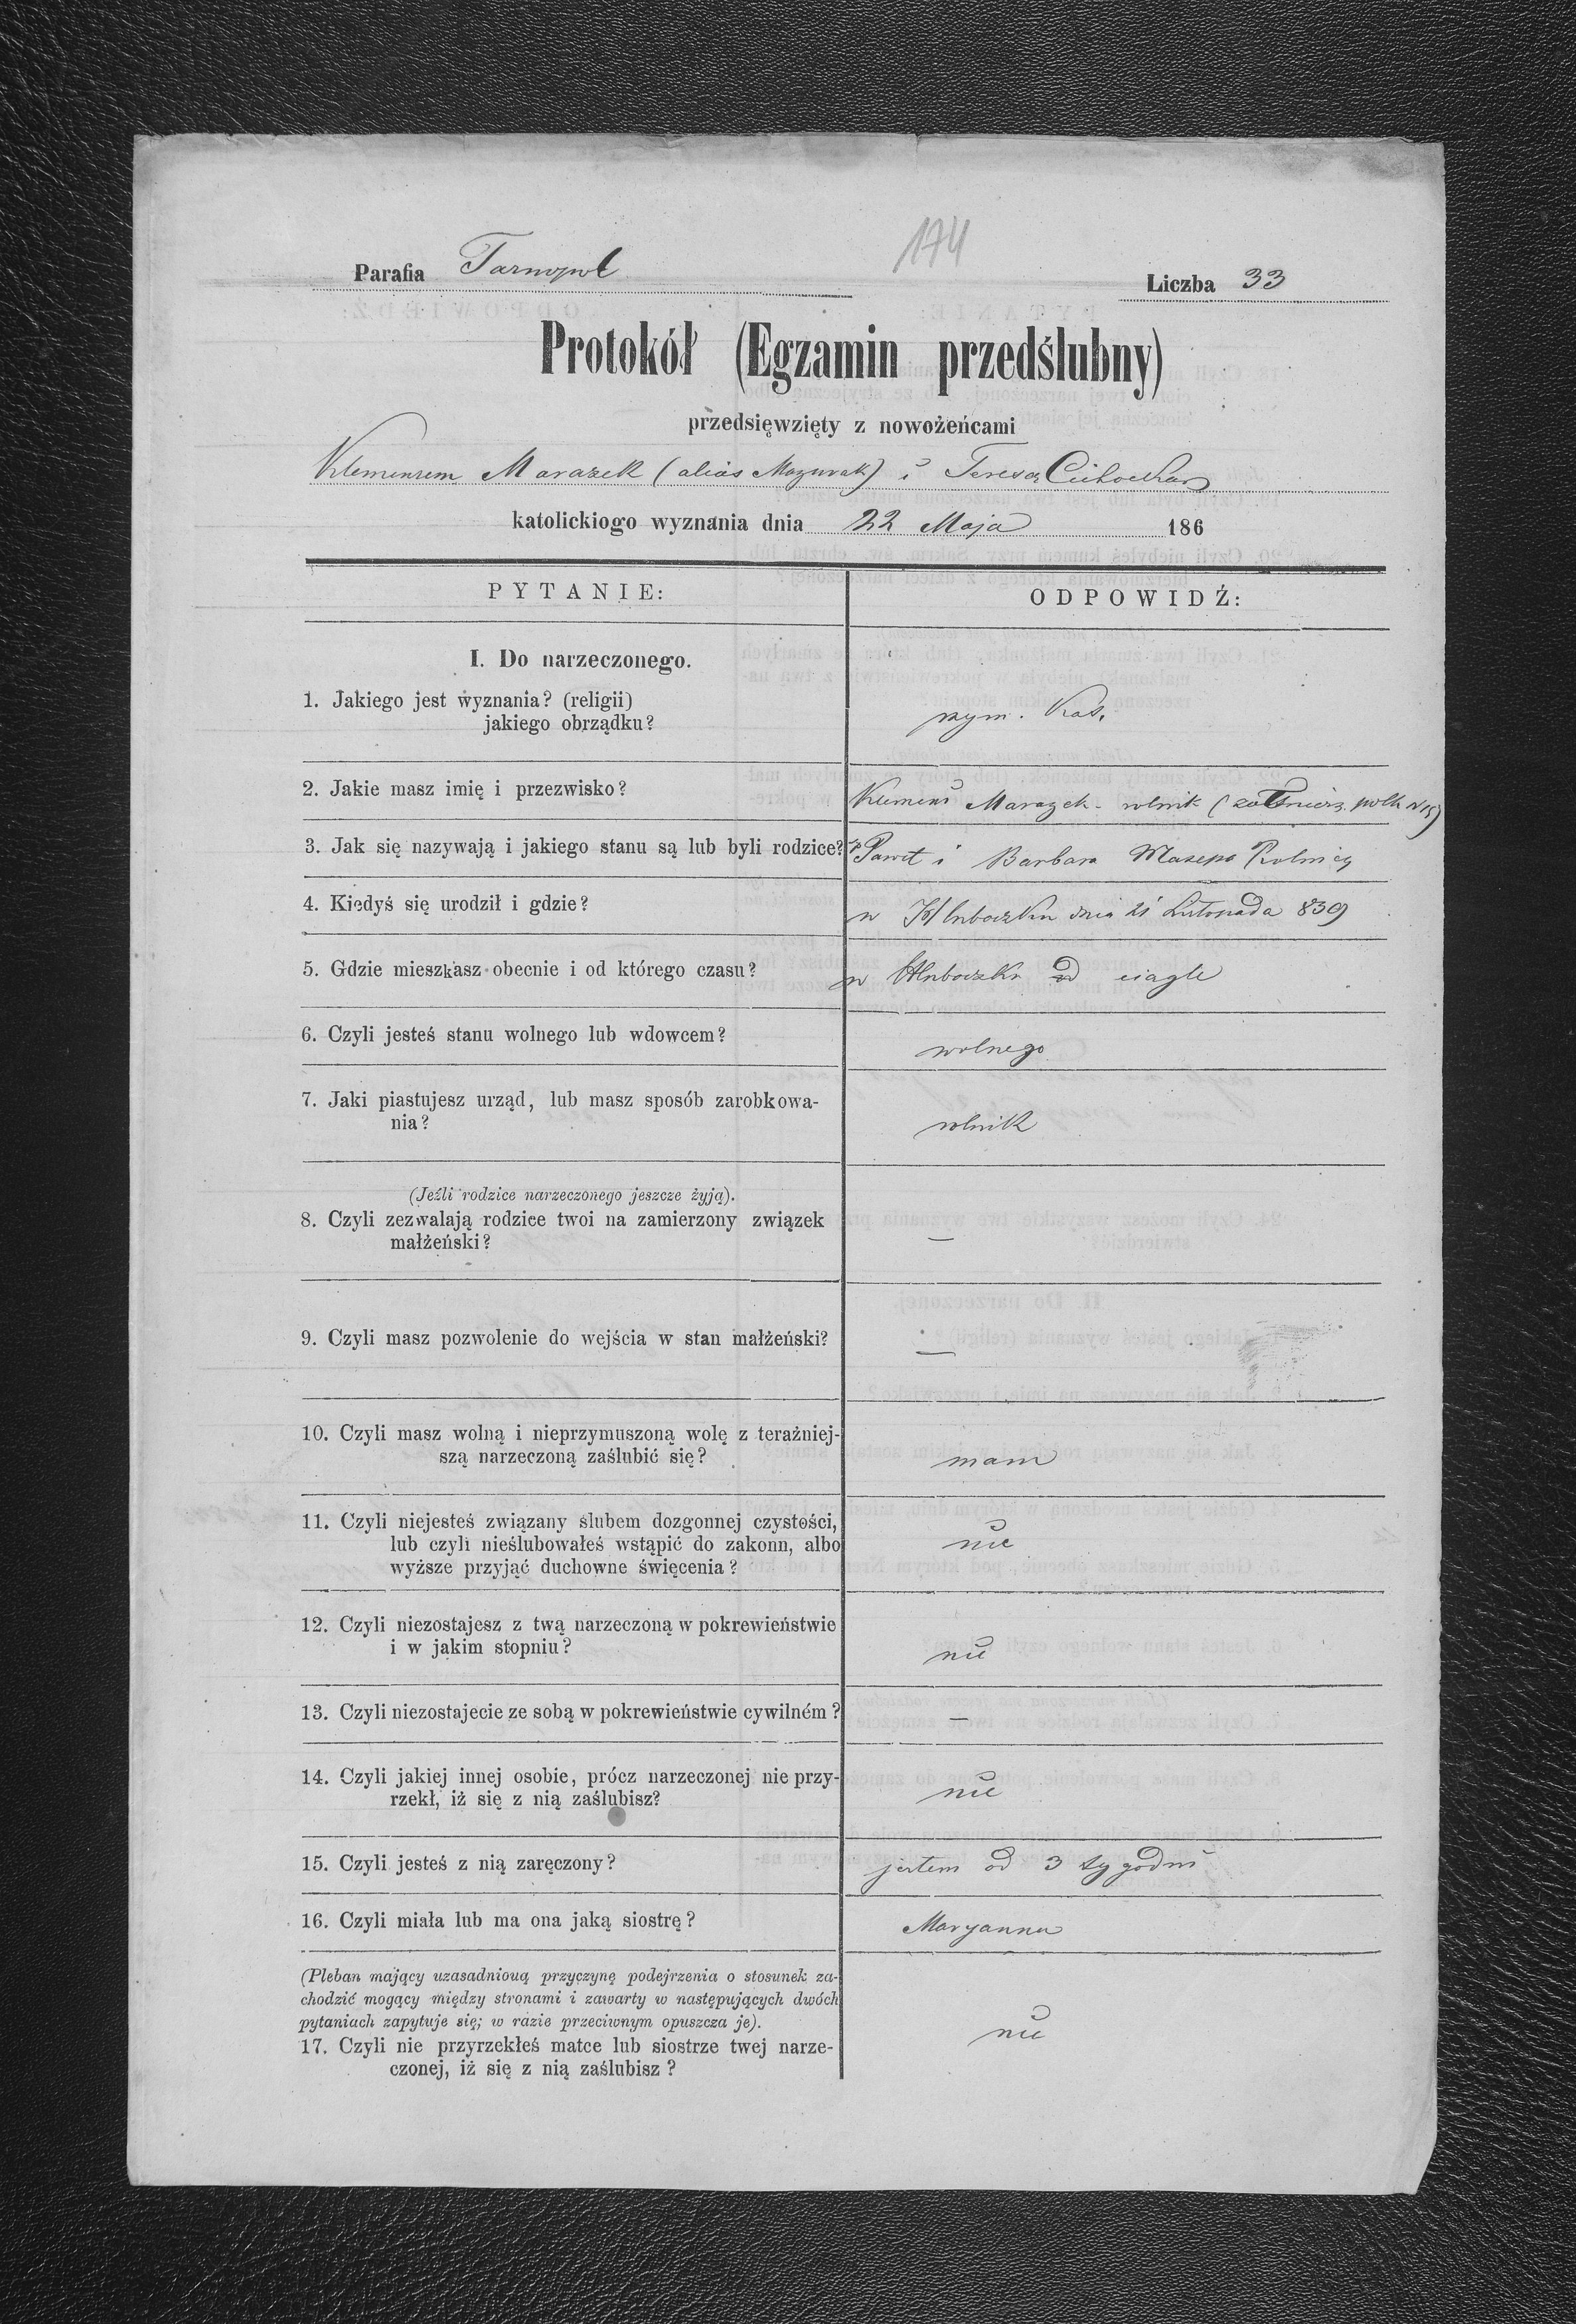 174
Parafia Tarnopol
Liczba 33
Protokół (Egzamin przedślubny)
przedsięwzięty z nowożeńcami
Klemensem Marazek (alias Mazurak) i Teresa Cichocka
katolickiogo wyznania dnia 22 Maja 186
PYTANIE:
ODPOWIDŹ:
I. Do narzeczonego.
1. Jakiego jest wyznania? (religii)
jakiego obrządku?
rzym. Kat.
2. Jakie masz imię i przezwisko?
Klemens Marazek - rolnik (żołnierz polk N 15)
3. Jak się nazywają i jakiego stanu są lub byli rodzice?
Paweł i Barbara Rolnicy
4. Kiedyś się urodził i gdzie?
w Hłuboczku dnia 21 Listopada 839
5. Gdzie mieszkasz obecnie i od którego czasu?
w Hłuboczku od ciągle
6. Czyli jesteś stanu wolnego lub wdowcem?
wolnego
7. Jaki piastujesz urząd, lub masz sposób zarobkowa-
nia?
rolnik
(Jeźli rodzice narzeczonego jeszcze żyją).
8. Czyli zezwalają rodzice twoi na zamierzony związek
małżeński?
—
9. Czyli masz pozwolenie do wejścia w stan małżeński?
—
10. Czyli masz wolną i nieprzymuszoną wolę z teraźniej-
szą narzeczoną zaślubić się?
mam
11. Czyli niejesteś związany ślubem dozgonnej czystości,
lub czyli nieślubowałeś wstąpić do zakonn, albo
wyższe przyjąć duchowne święcenia?
nie
12. Czyli niezostajesz z twą narzeczoną w pokrewieństwie
i w jakim stopniu?
nie
13. Czyli niezostajecie ze sobą w pokrewieństwie cywilném?
—
14. Czyli jakiej innej osobie, prócz narzeczonej nie przy-
rzekł, iż się z nią zaślubisz?
nie
15. Czyli jesteś z nią zaręczony?
jestem od 3 tygodni
16. Czyli miała lub ma ona jaką siostrę?
Maryanna
(Pleban mający uzasadniouą przyczynę podejrzenia o stosunek za-
chodzić mogący między stronami i zawarty w następujących dwóch
pytaniach zapytuje się; w razie przeciwnym opuszcza je).
17. Czyli nie przyrzekłeś matce lub siostrze twej narze-
czonej, iż się z nią zaślubisz?
nie